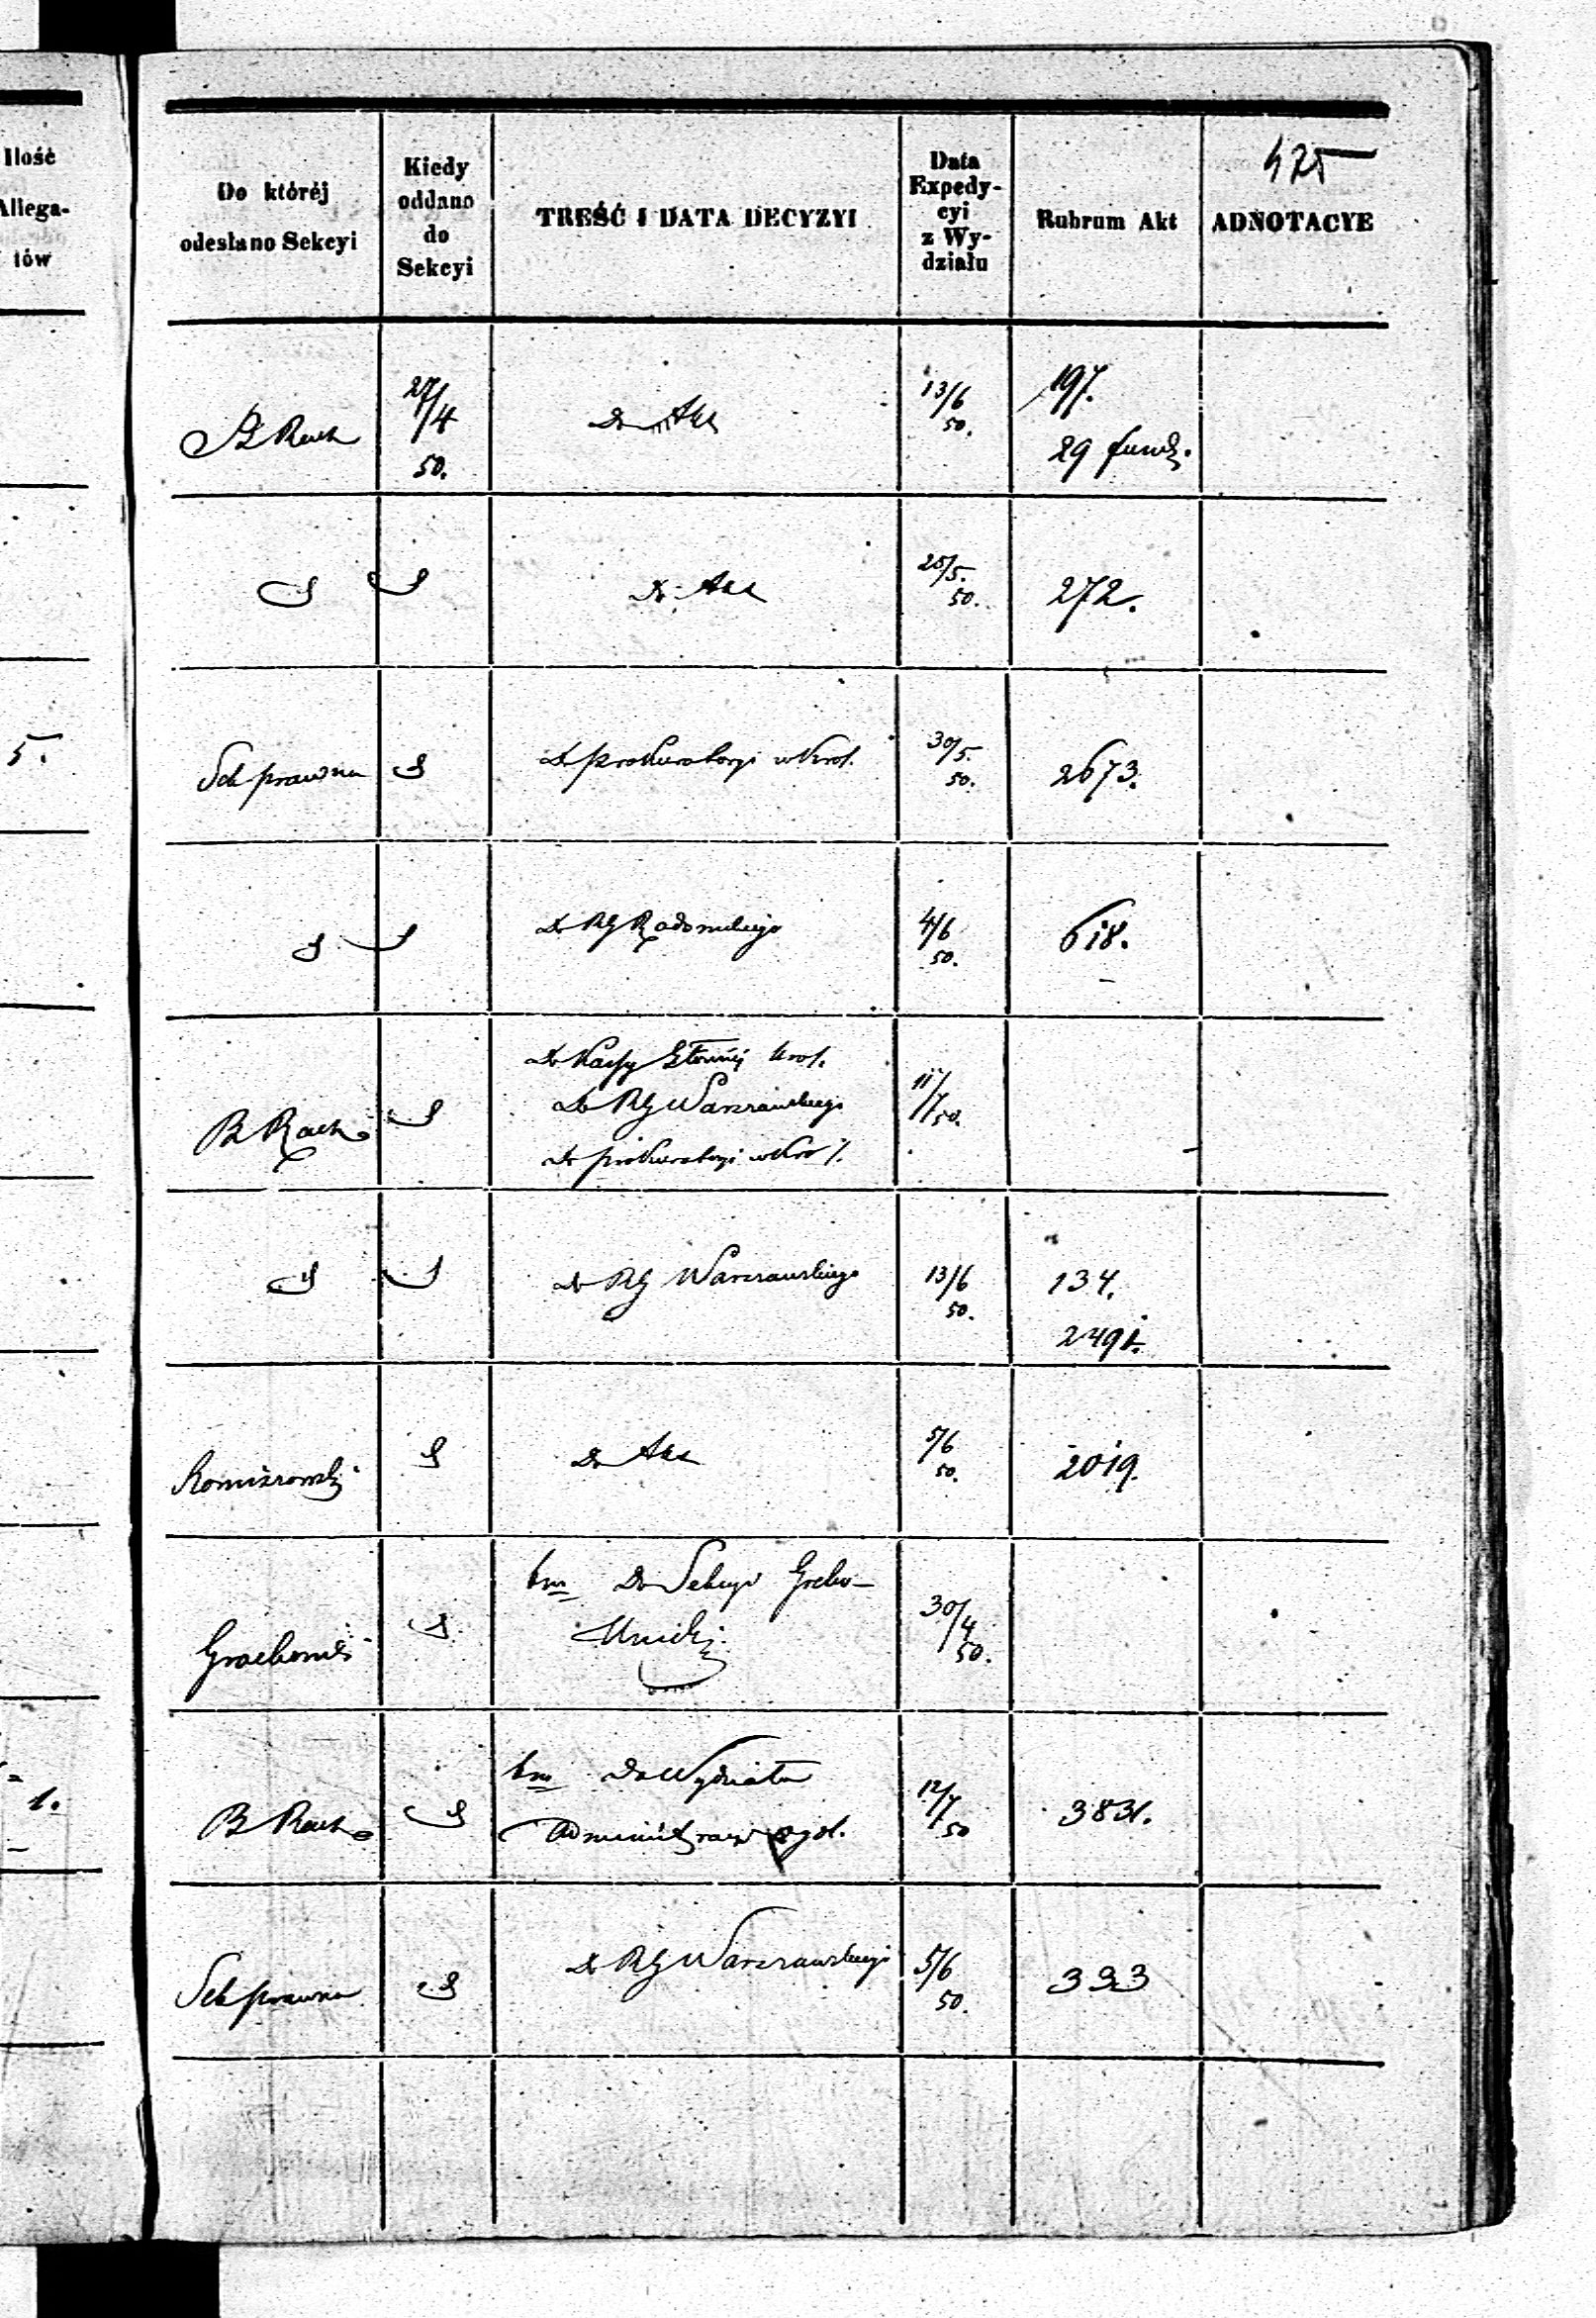 Ilość
Allega-
tów
5.
1.
425
Do któréj
odesłano Sekcyi
Kiedy
oddano
do
Sekcyi
TREŚĆ I DATA DECYZYI
Data
Expedy-
cyi
z Wy-
działu
Rubrum Akt
ADNOTACYE
B Rach
27/4
50.
Do Akt
13/6
50.
197.
29 fund.
Do Akt
25/5.
50.
272.
Sek prawna
Do prokuratoryi w Król.
30/5.
50.
2673.
Do RG Radomskiego
4/6
50.
618.
B Rach
Do Kassy Głównej Król.
Do RG Warszawskiego
Do prokuratoryi w Król.
11/7
50.
Do RG Warszawskiego
13/6
50.
134.
2491.
Do Akt
5/6
50.
2019.
bm Do Sekcyi
30/4
50.
B Rach
bm Do Wydziału
Administracyi ogól.
12/7
50
3831.
Sek prawna
Do RG Warszawskiego
5/6
50.
393